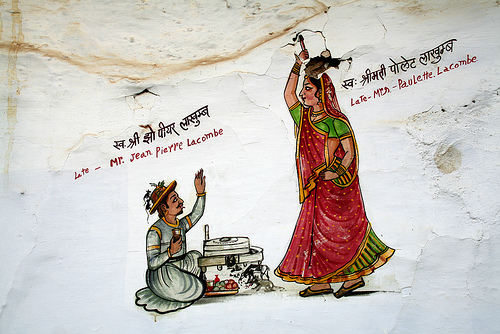 स्व. श्री झाँ पीयर लाखुम्ब
Late - Mr. Jean Pierre Lacombe
स्व: श्रीमती पोलेट लाखुम्ब
Late - Mrs - Paulette. Lacombe